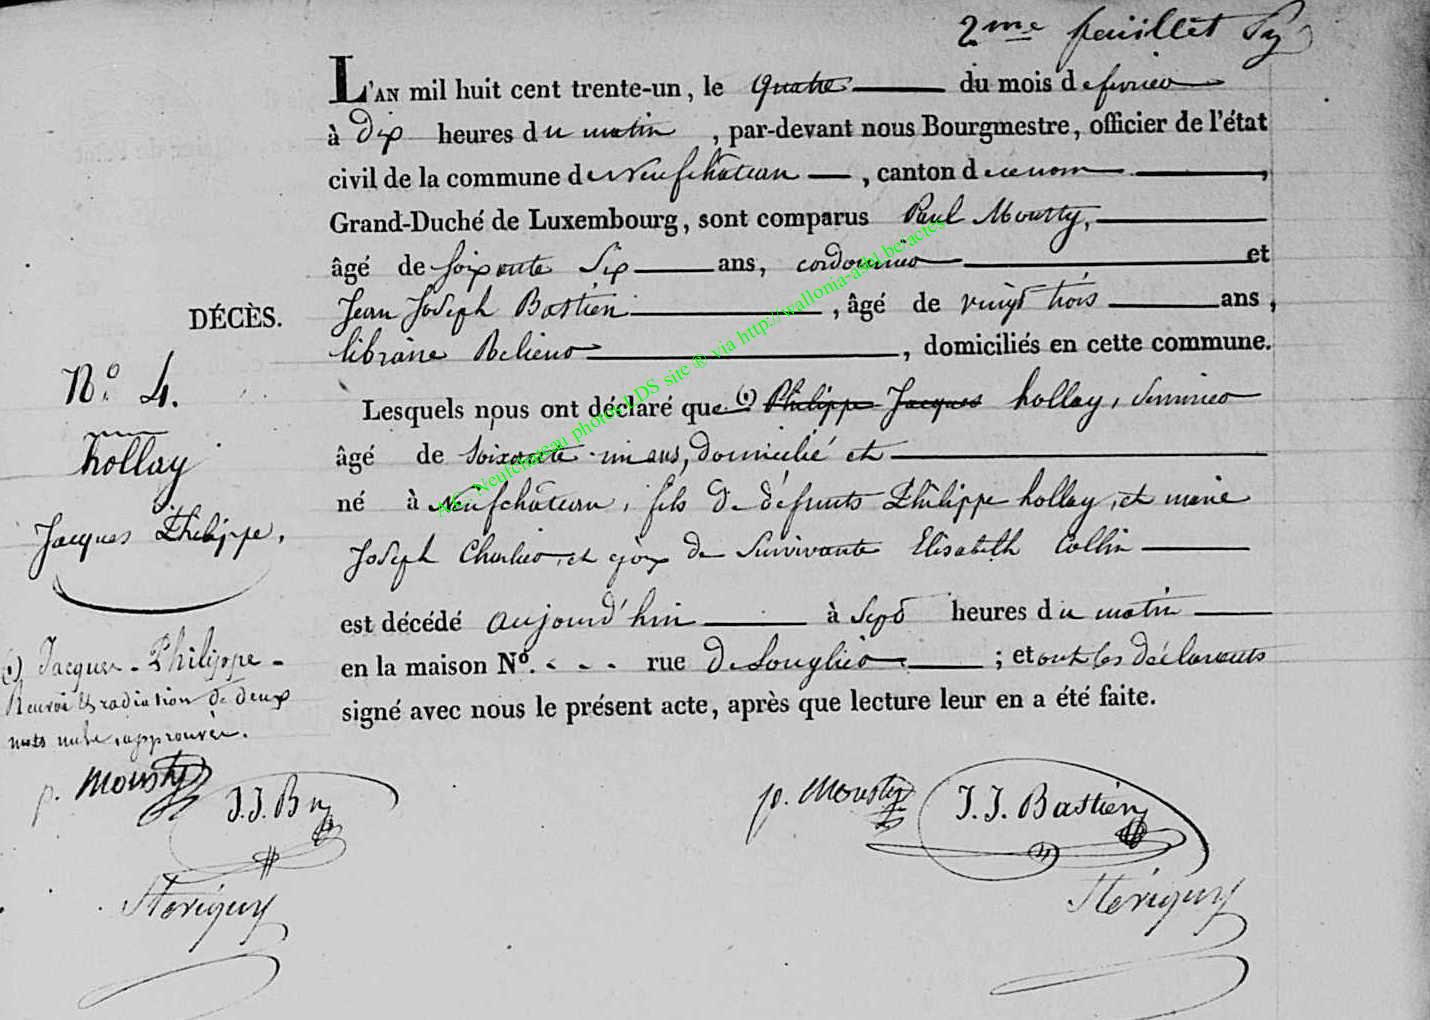 2me feuillet
L'AN mil huit cent trente-un, le quatre du mois de fevrier
à dix heures du matin, par-devant nous Bourgmestre, officier de l'état
civil de la commune de Neufchâteau, canton de ce nom,
Grand-Duché de Luxembourg, sont comparus Paul Mousty,
âgé de soixante six ans, cordonnier et
Jean Joseph Bastien, âgé de vingt trois ans,
libraire Relieur, domiciliés en cette commune.
DÉCÈS.
N° 4.
hollay
Jacques Philippe.
Lesquels nous ont déclaré que (1) Philippe Jacques hollay,
âgé de soixante-un ans, domicilié et
né à Neufchâteau, fils de défunts Philippe hollay, et marie
Joseph Charlier, et époux de Survivante Elisabeth Collin
est décédé aujourd'hui à sept heures du matin
en la maison N°. rue ; et ont les déclarants
signé avec nous le présent acte, après que lecture leur en a été faite.
(1) Jacques-Philippe-
Renvoi & radiation de deux
mots nuls, approuvés.
p. Mousty
J.J. B
p. Mousty
J.J. Bastien
AEC Neufchâteau photos LDS site ® via http://wallonia-asbl.be/actes